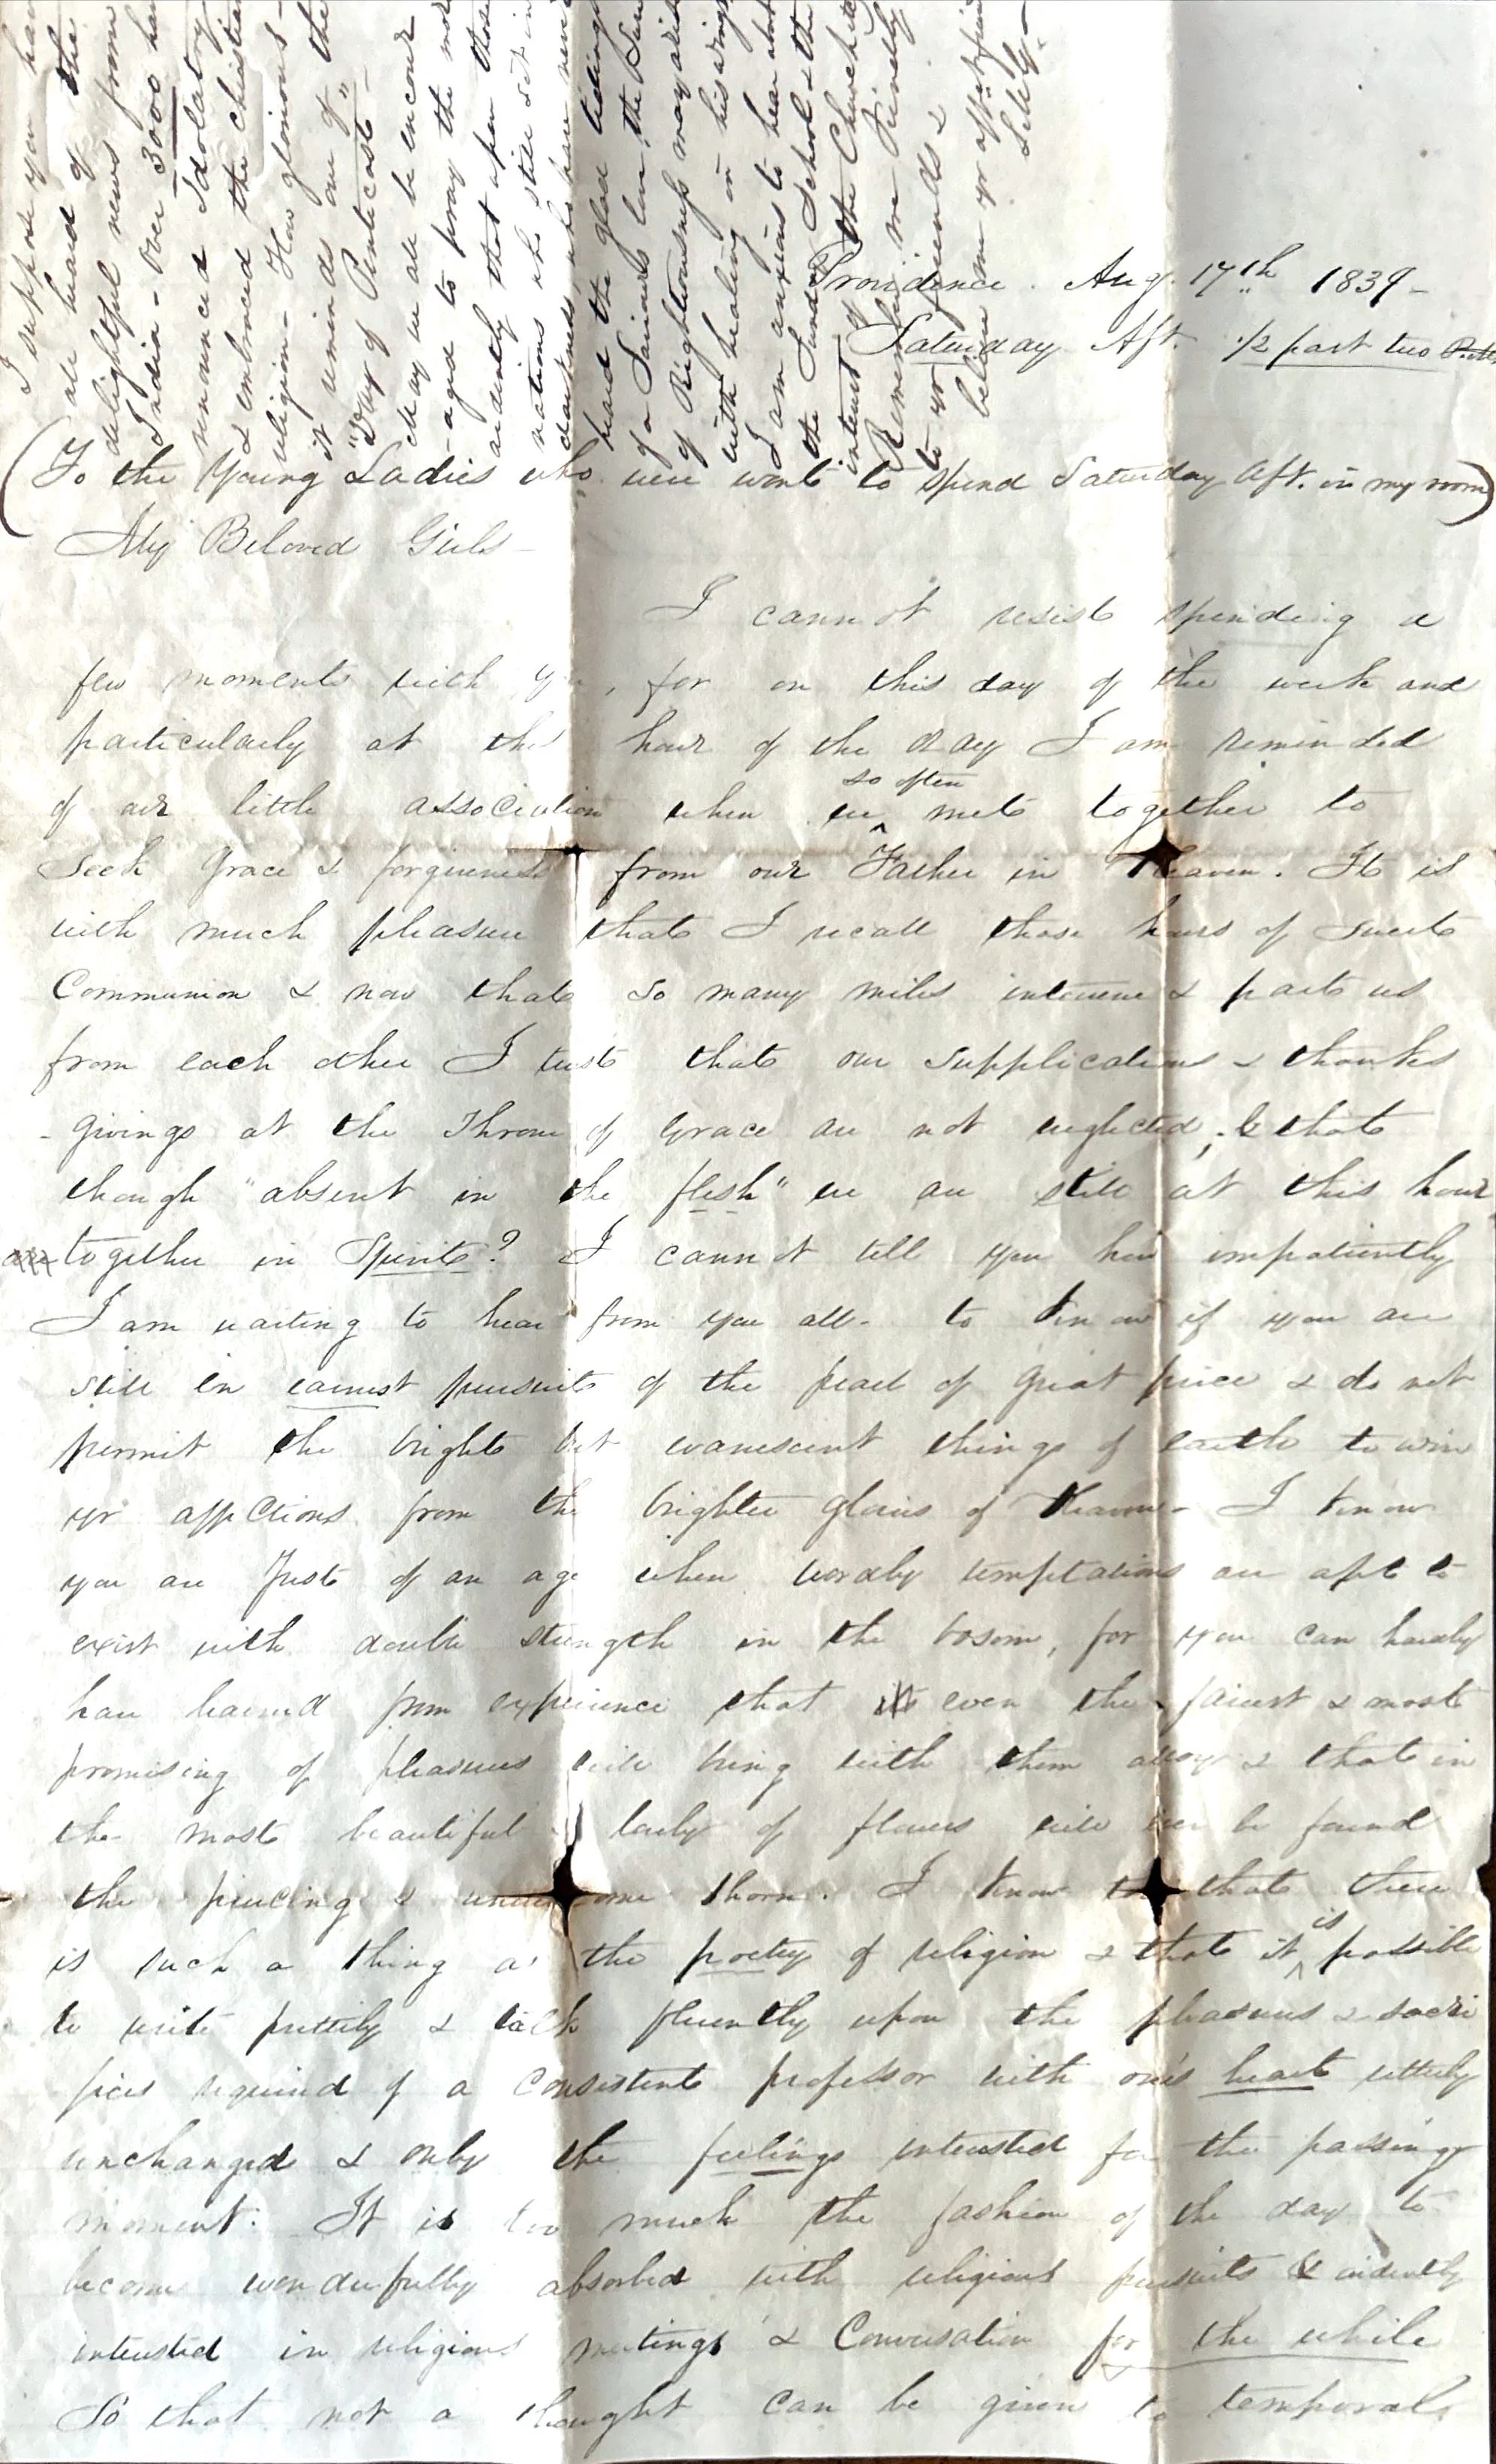 Providence. Aug. 17th 1839 -
Saturday Aft. 1/2 past two
(To the Young Ladies who were wont to spend Saturday Aft. in my room)
My Beloved Girls -
I cannot resist spending a
few moments with you, for on this day of the week and
particularly at this hour of the day I am reminded
of our little association when we so often met together to
seek grace & forgiveness from our Father in Heaven. It is
with much pleasure that I recall those hours of sweet
Communion & now that so many miles intervene & part us
from each other I trust that our supplications & thanks
-givings at the Throne of Grace are not neglected, & that
though "absent in the flesh" we are still at this hour
together in Spirit? I cannot tell you how impatiently
I am waiting to hear from you all - to know if you are
still in earnest pursuit of the pearl of great price & do not
permit the bright but evanescent things of earth to win
yr affections from the brighter glories of Heaven - I know
you are just of an age when worldly temptations are apt to
exist with double strength in the bosom, for you can hardly
have learned from experience that even the fairest & most
promising of pleasures will bring with them alloy & that in
the most beautiful & lovely of flowers will ever be found
the piercing & thorn. I know that there
is such a thing as the poetry of religion & that it is possible
to write prettily & talk fluently upon the pleasures & sacri
fices required of a consistent professor with one's heart utterly
unchanged & only the feelings interested for the passing
moment. It is too much the fashion of the day to
become wonderfully absorbed with religious pursuits & evidently
interested in religious meetings & Conversation for the while
So that not a thought can be given to temporal
I suppose you have
all heard of the
delightful news from
India - Over 3000 have
renounced Idolatry
& embraced the Christian
religion - How glorious -
it reminds one of "the
"Day of Pentecost" -
May we all be encour
-aged to pray the more
ardently that upon those
nations who still sit in
darkness, who have never
heard the glad tidings
of a Saviour's love, the Sun
of Righteousness may arise
with healing in his wings
I am anxious to hear about
the Sunday School & the
interest of the Church &c
Remember me kindly
to yr friends &
believe me yr aff